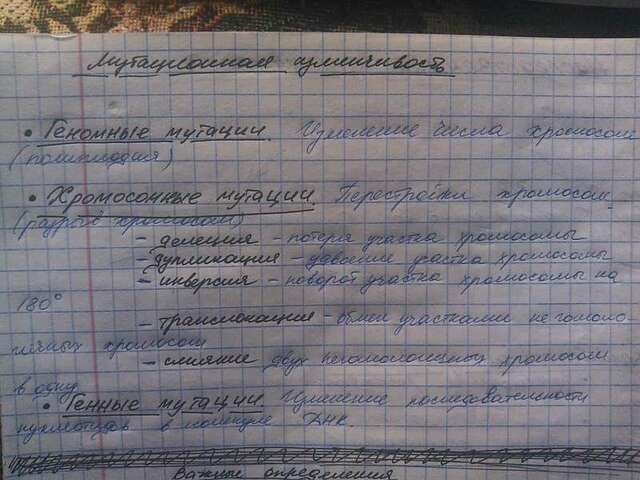 Мутационная изменчивость
• Геномные мутации. Изменение числа хромосом
(полиплодия)
• Хромосомные мутации. Перестройки хромосом
(разрыв хромосом)
– делеция – потеря участка хромосомы
– дупликация – удвоение участка хромосомы
– инверсия – поворот участка хромосомы на
180°
– транслокация – обмен участками негомоло-
гичных хромосом
– слияние двух негомологичных хромосом
в одну
• Генные мутации. Изменение последовательности
нуклеотидов в молекуле ДНК.
Важные определения